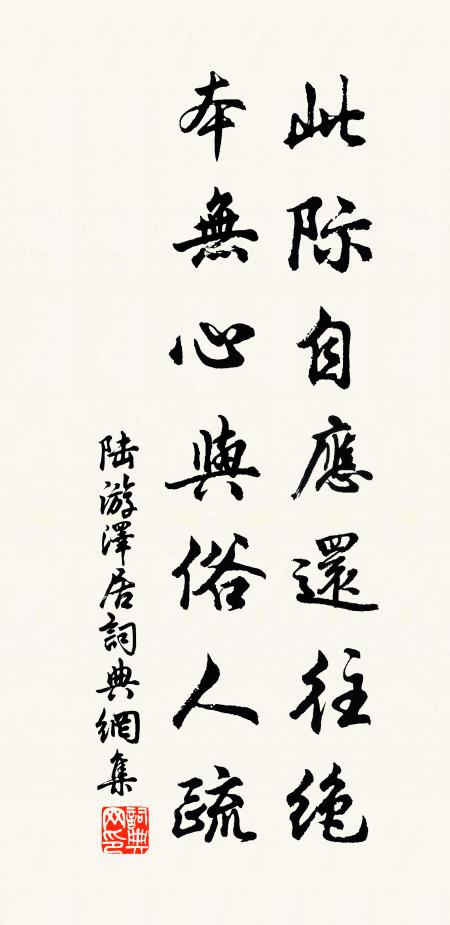 此际自應還往绝
本無心與俗人疏
陆游澤居詞典網集
詞典网印